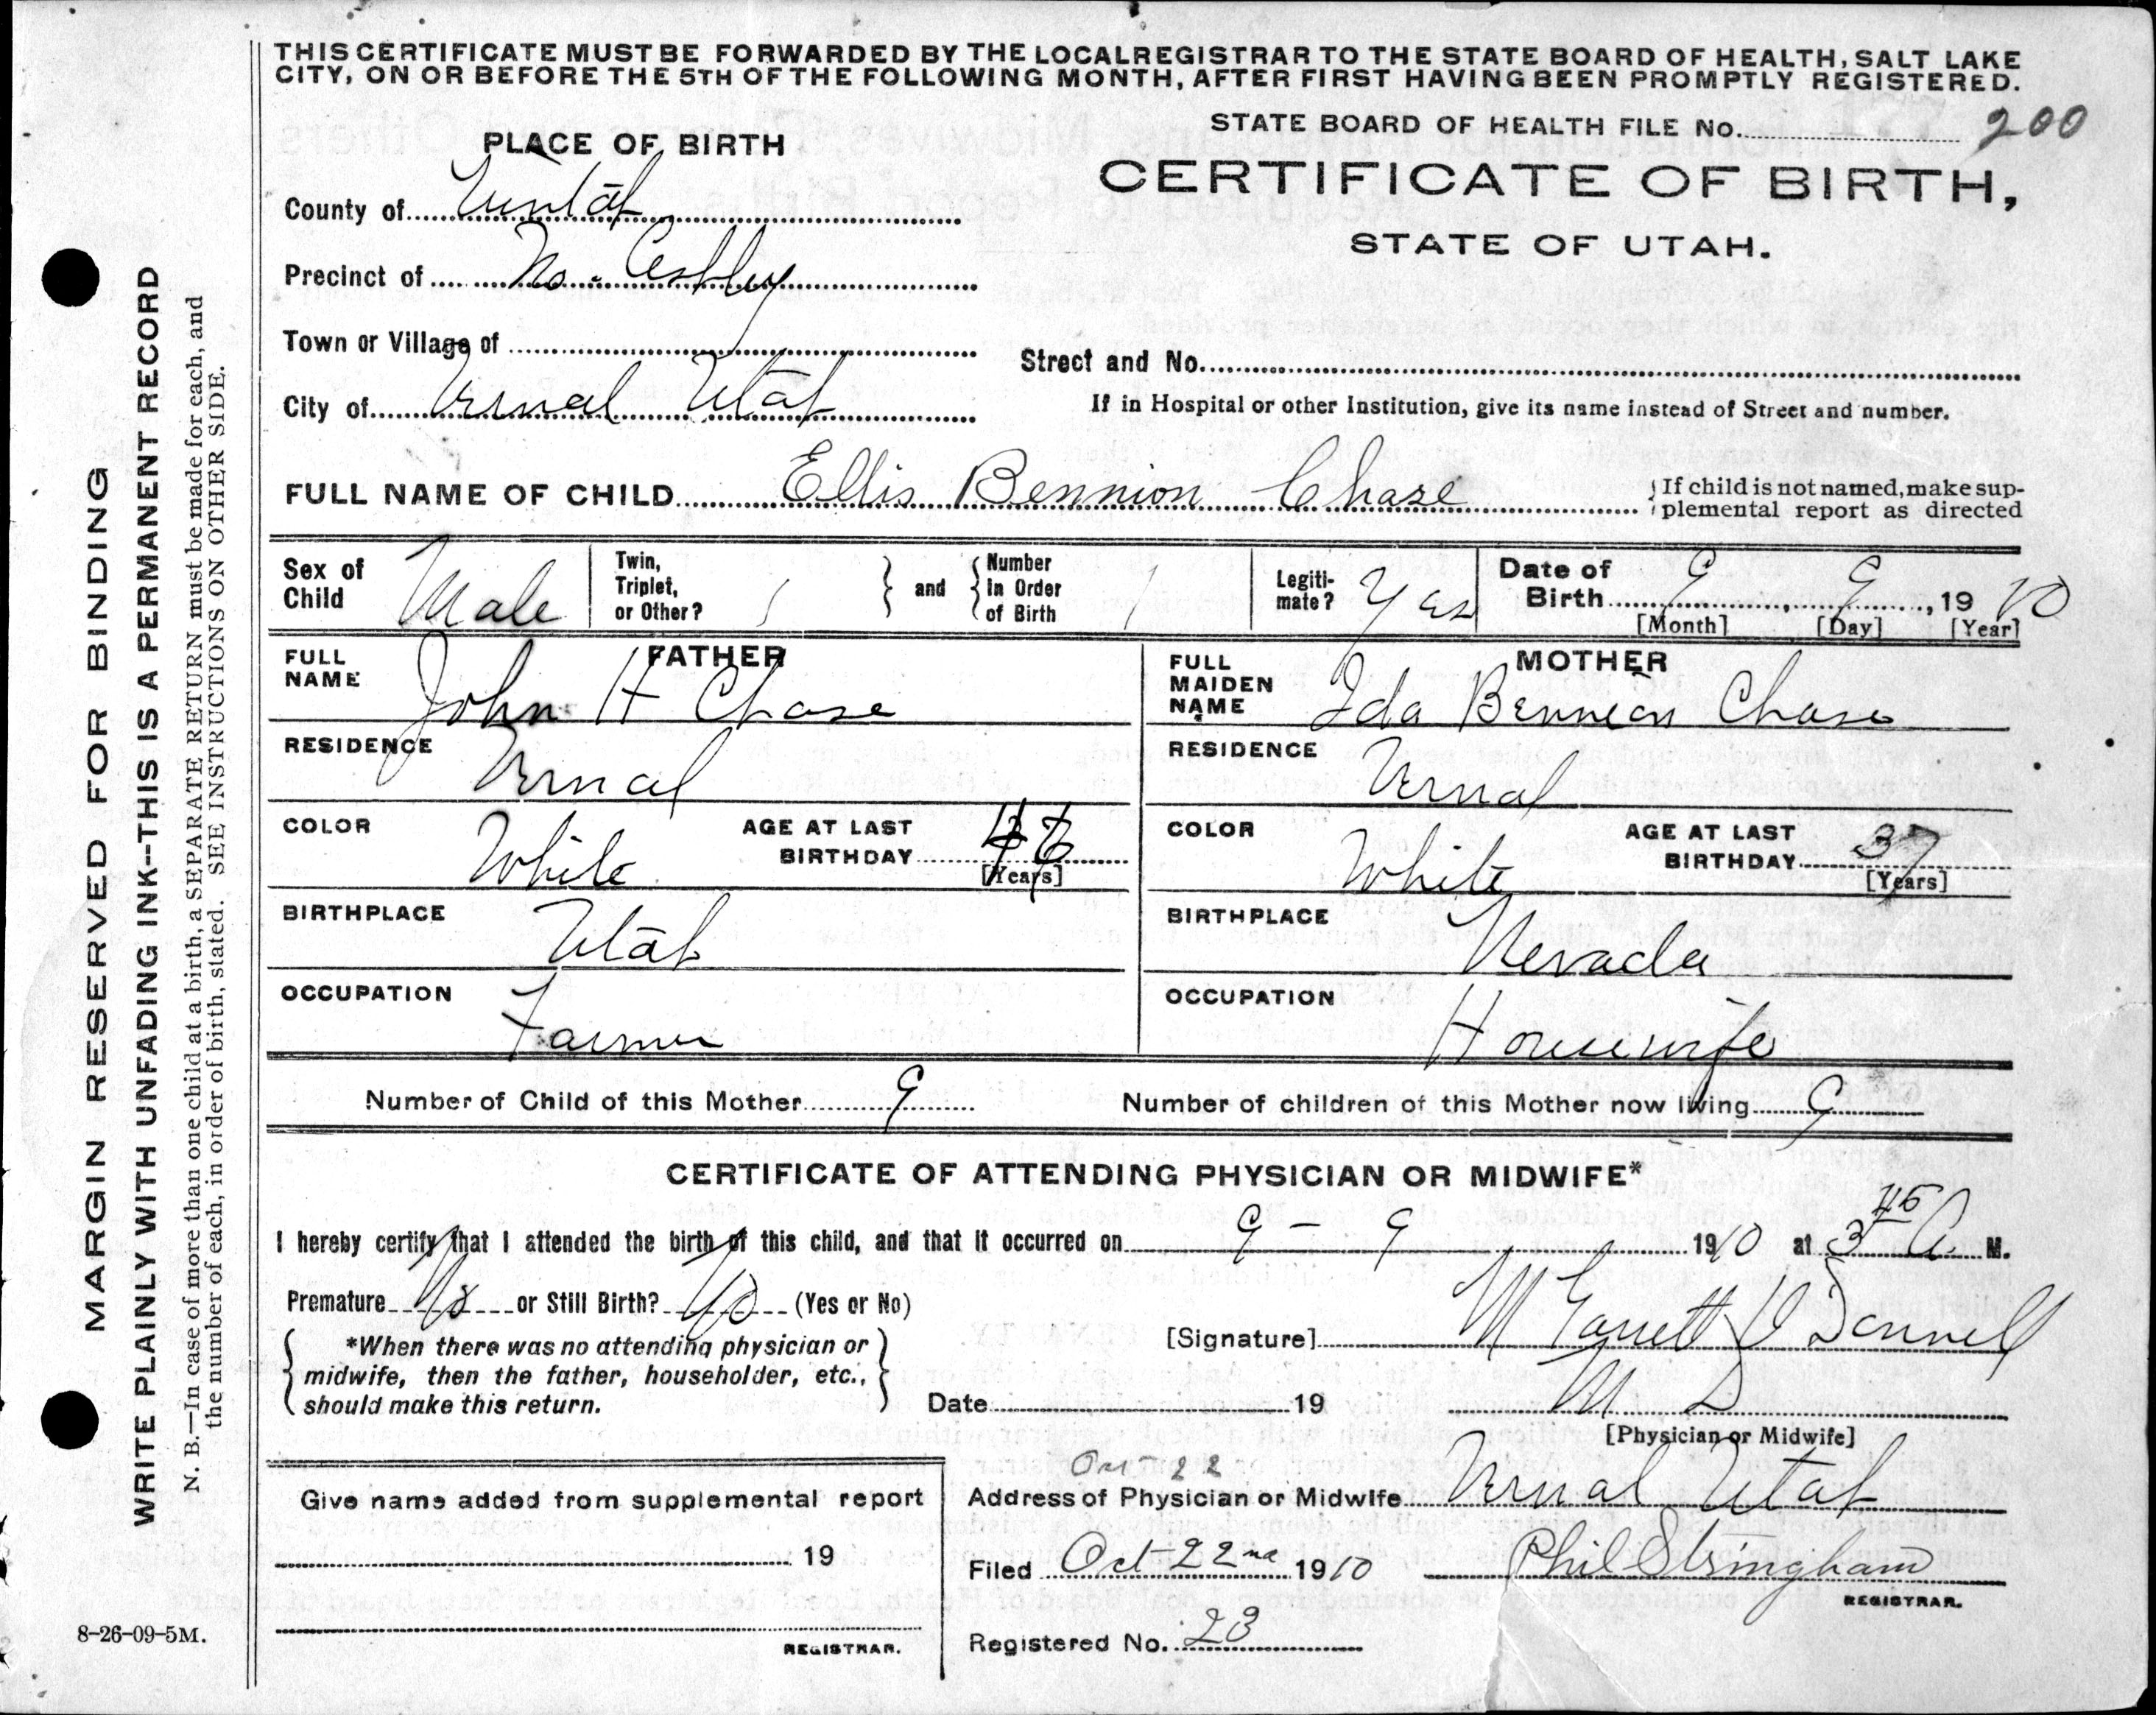 THIS CERTIFICATE MUST BE FORWARDED BY THE LOCAL REGISTRAR TO THE STATE BOARD OF HEALTH, SALT LAKE
CITY, ON OR BEFORE THE 5TH OF THE FOLLOWING MONTH, AFTER FIRST HAVING BEEN PROMPTLY REGISTERED.
STATE BOARD OF HEALTH FILE No. 200
PLACE OF BIRTH
CERTIFICATE OF BIRTH,
STATE OF UTAH.
County of Uintah
Precinct of No. Ashley
Town or Village of
Street and No.
City of Vernal Utah
If in Hospital or other Institution, give its name instead of Street and number.
FULL NAME OF CHILD Ellis Bennion Chase
If child is not named, make sup-
plemental report as directed
Sex of Child Male
Twin, Triplet, or Other? 1
and
Number in Order of Birth 1
Legiti-mate? Yes
Date of Birth 9, 9, 1910
[Month] [Day] [Year]
FATHER
FULL NAME John H Chase
RESIDENCE Vernal
COLOR White
AGE AT LAST BIRTHDAY 46
[Years]
BIRTHPLACE Utah
OCCUPATION Farmer
MOTHER
FULL MAIDEN NAME Ida Bennion Chase
RESIDENCE Vernal
COLOR White
AGE AT LAST BIRTHDAY 37
[Years]
BIRTHPLACE Nevada
OCCUPATION Housewife
Number of Child of this Mother 9
Number of children of this Mother now living 9
CERTIFICATE OF ATTENDING PHYSICIAN OR MIDWIFE*
I hereby certify that I attended the birth of this child, and that it occurred on 9 - 9 1910 at 3 45 A. M.
Premature No or Still Birth? No (Yes or No)
*When there was no attending physician or
midwife, then the father, householder, etc.,
should make this return.
[Signature] M Garrett O Donnell
M D
[Physician or Midwife]
Date 19
Oct 22
Address of Physician or Midwife Vernal Utah
Give name added from supplemental report
19
REGISTRAR.
Filed Oct 22nd 1910
Phil Stringham
REGISTRAR.
Registered No. 23
8-26-09-5M.
MARGIN RESERVED FOR BINDING
WRITE PLAINLY WITH UNFADING INK--THIS IS A PERMANENT RECORD
N. B.—In case of more than one child at a birth, a SEPARATE RETURN must be made for each, and
the number of each, in order of birth, stated. SEE INSTRUCTIONS ON OTHER SIDE.